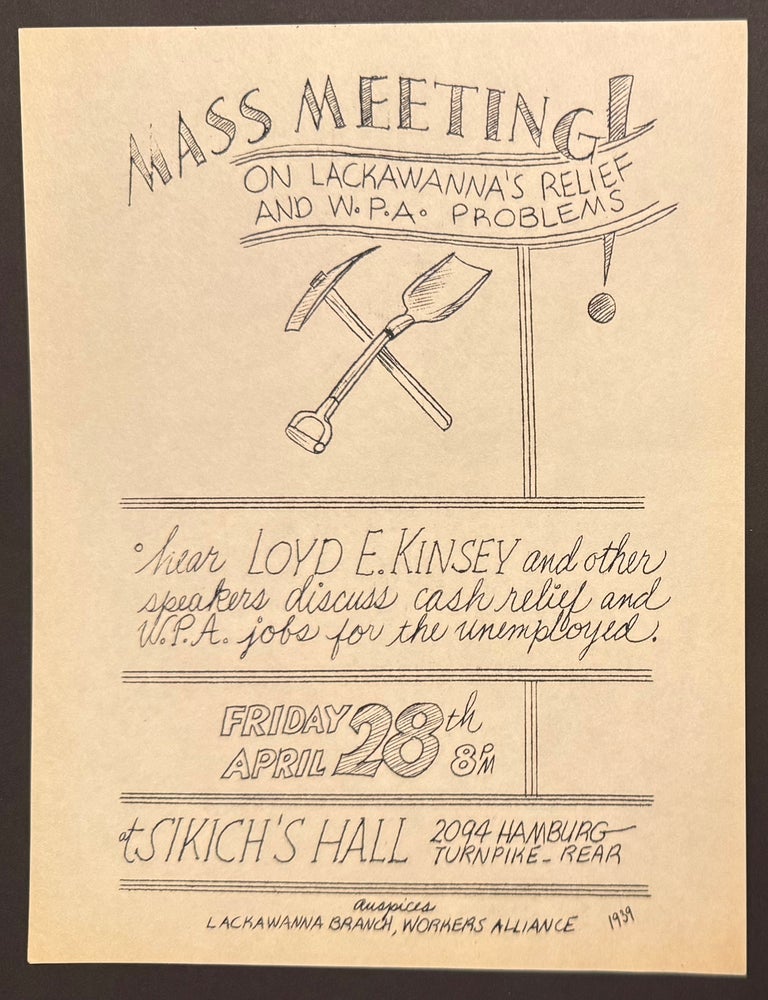 MASS MEETING!
ON LACKAWANNA'S RELIEF
AND W.P.A. PROBLEMS!
hear LOYD E. KINSEY and other
speakers discuss cash relief and
W.P.A. jobs for the unemployed.
FRIDAY 28th
APRIL 8 PM
at SIKICH'S HALL 2094 HAMBURG
TURNPIKE - REAR
auspices
LACKAWANNA BRANCH, WORKERS ALLIANCE 1939